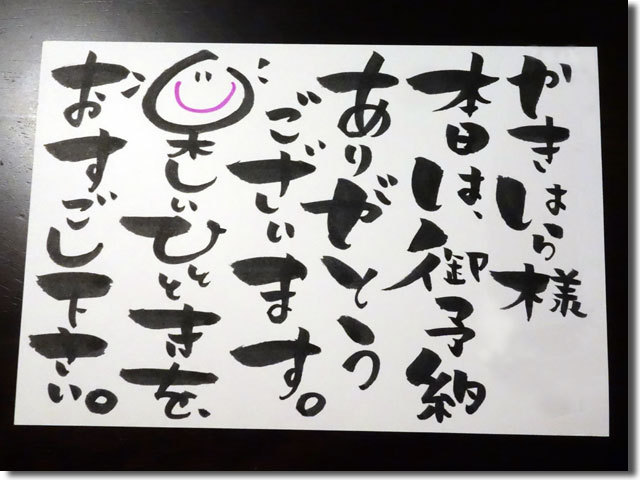 やきはら様
本日は、御予納
ありがとう
ございます。
楽しいひとときを、
おすごし下さい。